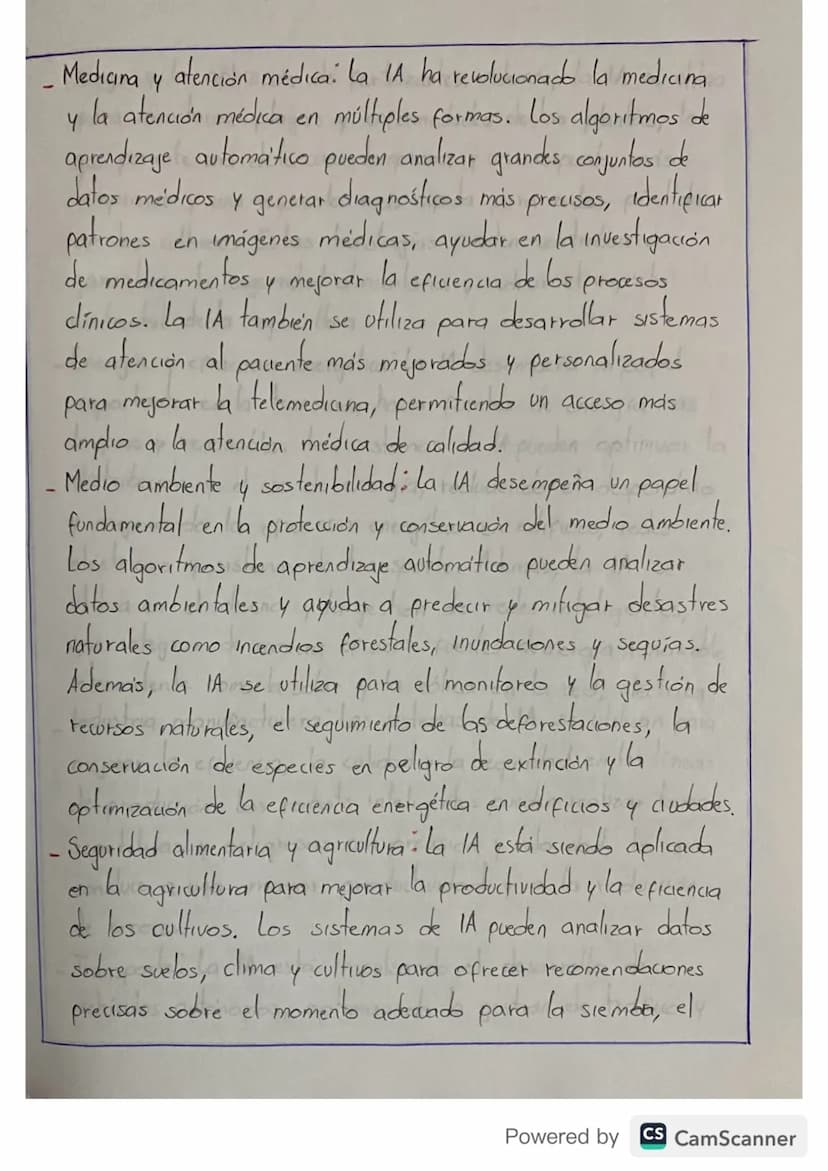 - Medicina y atención médica: La IA ha revolucionado la medicina
y la atención médica en múltiples formas. Los algoritmos de
aprendizaje automático pueden analizar grandes conjuntos de
datos médicos y generar diagnósticos más precisos, identificar
patrones en imágenes médicas, ayudar en la investigación
de medicamentos y mejorar la eficiencia de los procesos
clínicos. La IA también se utiliza para desarrollar sistemas
de atención al paciente más mejorados y personalizados
para mejorar la telemedicina, permitiendo un acceso más
amplio a la atención médica de calidad.
- Medio ambiente y sostenibilidad: La IA desempeña un papel
fundamental en la protección y conservación del medio ambiente.
Los algoritmos de aprendizaje automático pueden analizar
datos ambientales y ayudar a predecir y mitigar desastres
naturales como incendios forestales, inundaciones y sequías.
Además, la IA se utiliza para el monitoreo y la gestión de
recursos naturales, el seguimiento de las deforestaciones, la
conservación de especies en peligro de extinción y la
optimización de la eficiencia energética en edificios y ciudades.
- Seguridad alimentaria y agricultura: La IA está siendo aplicada
en la agricultura para mejorar la productividad y la eficiencia
de los cultivos. Los sistemas de IA pueden analizar datos
sobre suelos, clima y cultivos para ofrecer recomendaciones
precisas sobre el momento adecuado para la siembra, el
Powered by CS CamScanner